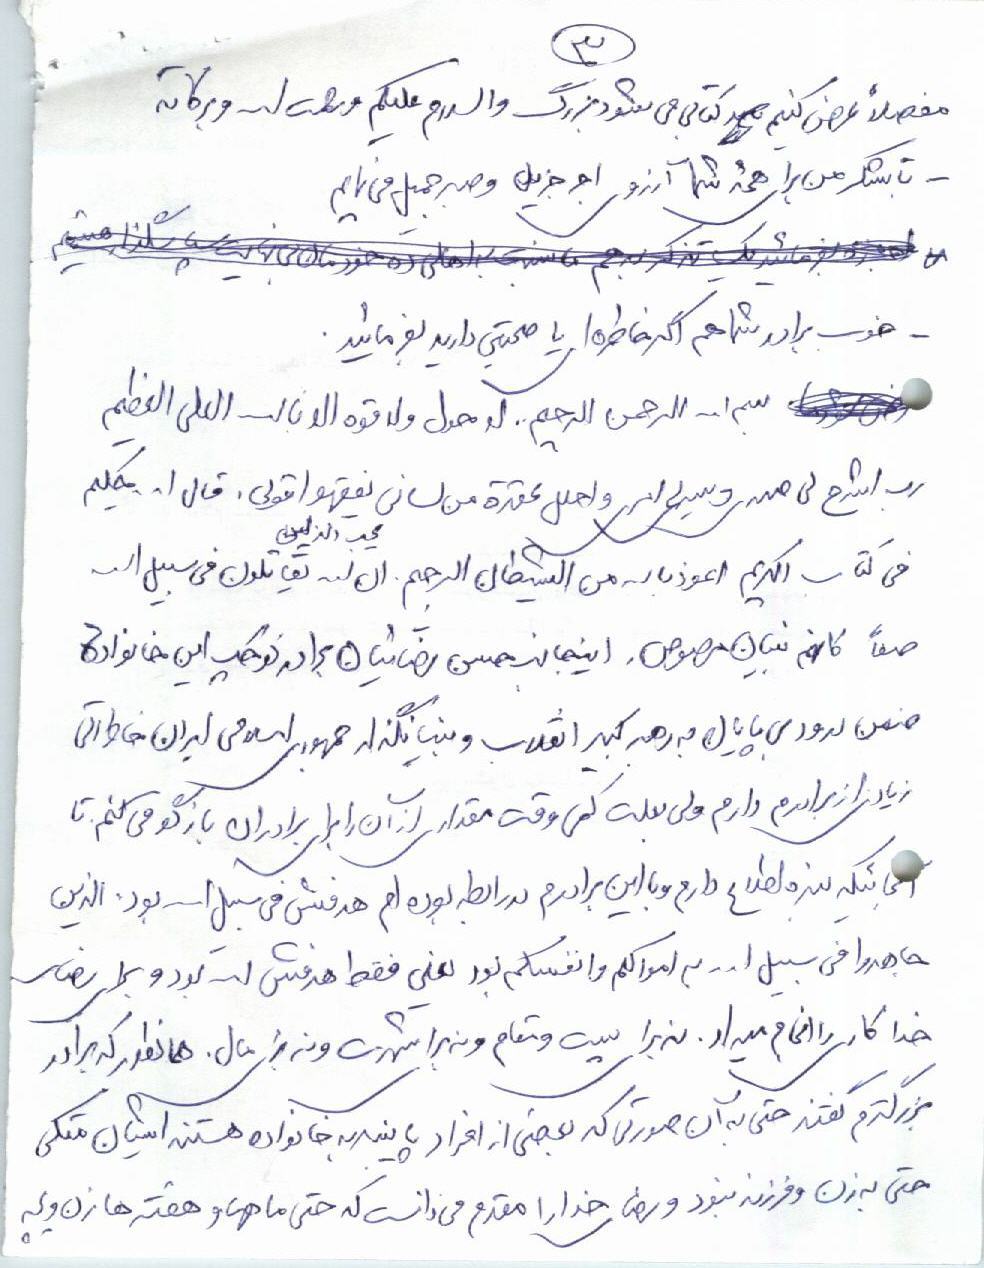 ۳
مفصلاً عرض کنیم کتابی می شود بزرگ والسلام علیکم ورحمت الله وبرکاته
- باتشکر من برای همهٔ شما آرزوی اجر جزیل و صبر جمیل می نمایم
- خوب برادر شما هم اگر خاطره ای یا صحبتی دارید بفرمائید.
بسم الله الرحمن الرحیم.. لا حول ولا قوه الا بالله العلی العظیم
رب اشرح لی صدری و یسرلی امری واحلل عقدة من لسانی یفقهوا قولی. قال الله
فی کتاب الکریم اعوذ بالله من الشیطان الرجیم. ان الله یحب الذین یقاتلون فی سبیل الله
صفاً کانهم بنیان مرصوص. اینجانب حسن رضائیان برادر کوچک این خانواده
ضمن درود بی پایان به رهبر کبیر انقلاب و بنیانگذار جمهوری اسلامی ایران خاطراتی
زیادی از برادرم دارم ولی بعلت کمی وقت مقداری از آن را برای برادران بازگو می کنم. تا
آنجائیکه بنده اطلاع دارم و با این برادرم در رابطه بوده ام هدفش فی سبیل الله بود. الذین
جاهدوا فی سبیل الله به اموالکم وانفسکم بود یعنی فقط هدفش الله بود و برای رضای
خدا کاری را انجام میداد. نه برای پست و مقام و نه برای شهرت و نه برای مال. همانطور که برادر
بزرگترم گفتند حتی به آن صورتی که بعضی از افراد پایبند به خانواده هستند ایشان متکی
حتی به زن و فرزند نبود و رضای خدا را مقدم می دانست که حتی ماهها و هفته ها زن و بچه